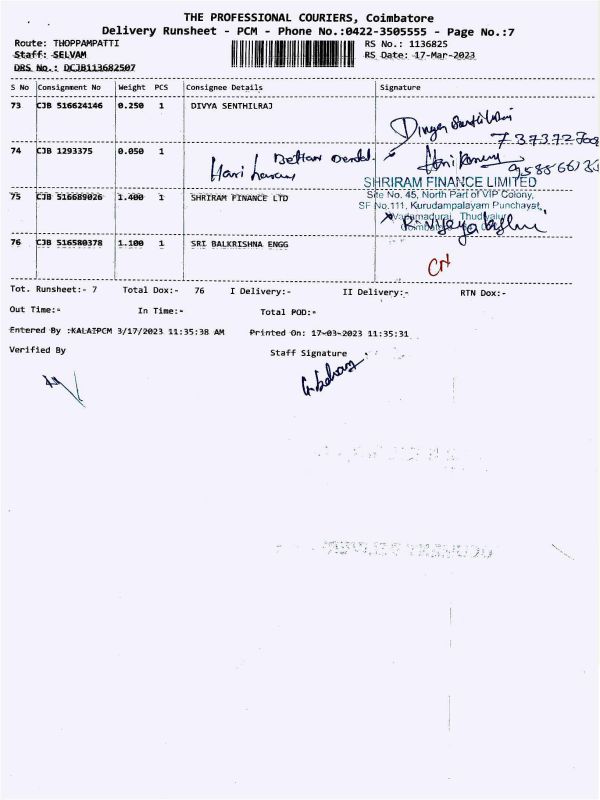 THE PROFESSIONAL COURIERS, Coimbatore
Delivery Runsheet - PCM - Phone No.:0422-3505555 - Page No.:7
Route: THOPPAMPATTI RS No.: 1136825
Staff: SELVAM RS Date: 17-Mar-2023
DRS No.: DCJB113682507
S No Consignment No Weight PCS Consignee Details Signature
73 CJB 516624146 0.250 1 DIVYA SENTHILRAJ
74 CJB 1293375 0.050 1
Hari haran
SHRIRAM FINANCE LIMITED
75 CJB 516689026 1.400 1 SHRIRAM FINANCE LTD Site No. 45, North Part of VIP Colony,
SF No.111, Kurudampalayam Punchayat,
Vadamadurai, Thudiyalur
76 CJB 516580378 1.100 1 SRI BALKRISHNA ENGG
CN
Tot. Runsheet:- 7 Total Dox:- 76 I Delivery:- II Delivery:- RTN Dox:-
Out Time:- In Time:- Total POD:-
Entered By :KALAIPCM 3/17/2023 11:35:38 AM Printed On: 17-03-2023 11:35:31
Verified By Staff Signature